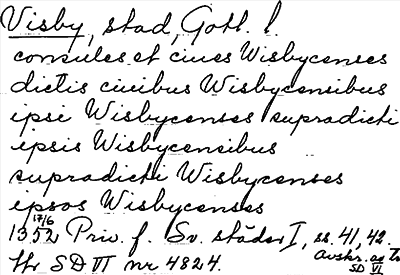 Visby, stad, Gotl. l.
consules et ciues Wisbycenses
dictis ciuibus Wisbycensibus
ipsi Wisbycenses supradicti
ipsis Wisbycensibus
supradicti Wisbycenses
ipsos Wisbycenses
17/6
1352 Priv. f. Sv. städer I, ss. 41, 42.
Avskr. ag To
tr SD VI nr 4824.
SD VI